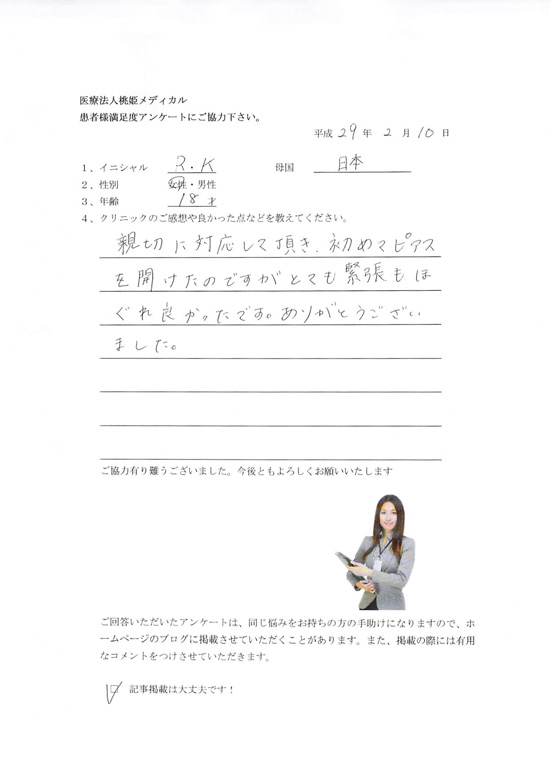 医療法人桃姫メディカル
患者様満足度アンケートにご協力下さい。
平成 29 年 2 月 10 日
1、イニシャル R・K 母国 日本
2、性別 女性・男性
3、年齢 18 才
4、クリニックのご感想や良かった点などを教えてください。
親切に対応して頂き、初めてピアス
を開けたのですがとても緊張もほ
ぐれ良かったです。ありがとうござい
ました。
ご協力有り難うございました。今後ともよろしくお願いいたします
ご回答いただいたアンケートは、同じ悩みをお持ちの方の手助けになりますので、ホ
ームページのブログに掲載させていただくことがあります。また、掲載の際には有用
なコメントをつけさせていただきます。
□ 記事掲載は大丈夫です！